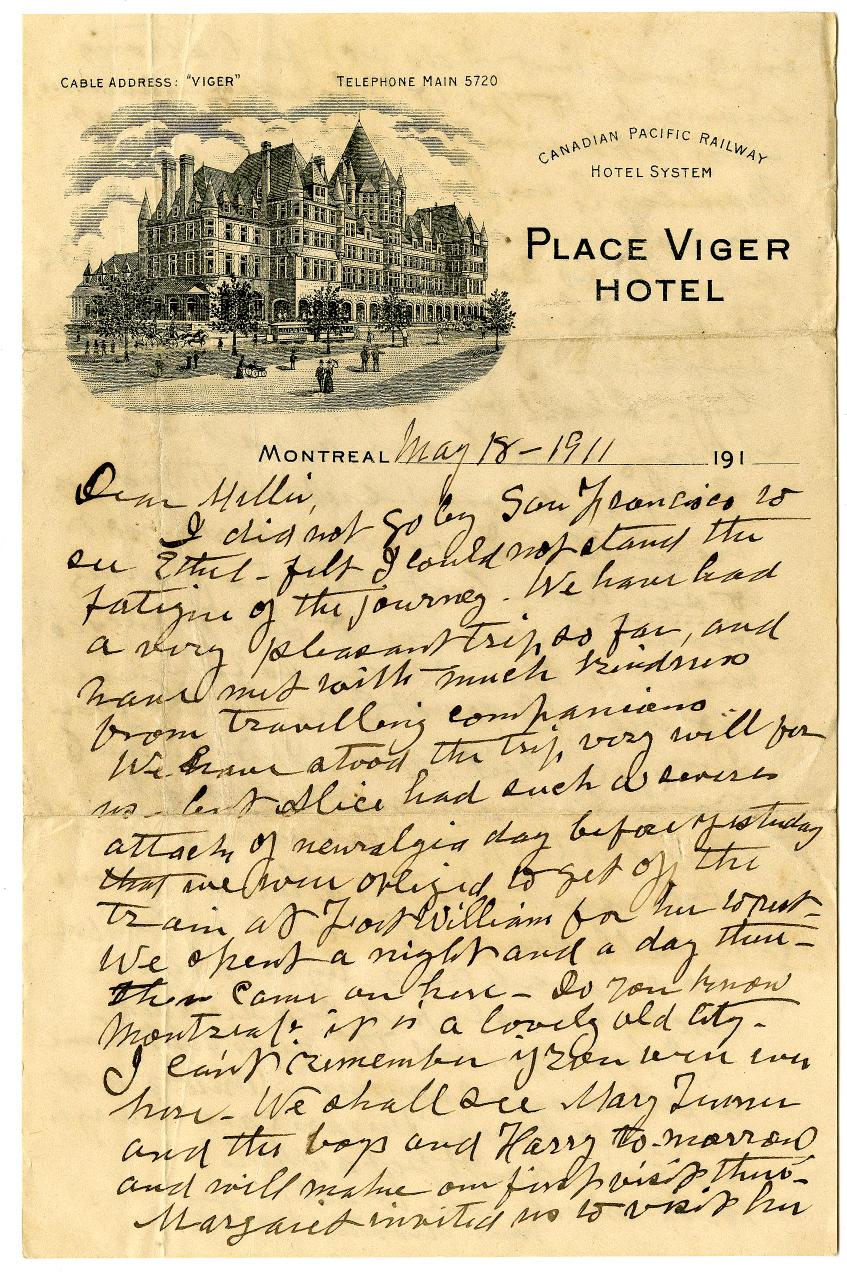 CABLE ADDRESS: "VIGER"
TELEPHONE MAIN 5720
CANADIAN PACIFIC RAILWAY
HOTEL SYSTEM
PLACE VIGER
HOTEL
MONTREAL May 18 - 1911 191
Dear Millie,
I did not go by San Francisco to
see Ethel - felt I could not stand the
fatigue of the journey. We have had
a very pleasant trip so far, and
have met with much kindness
from travelling companions.
We have stood the trip very well for
us - but Alice had such a severe
attack of neuralgia day before yesterday
that we were obliged to get off the
train at Fort William for her to rest -
We spent a night and a day there -
then came on here - Do you know
Montreal? it is a lovely old city.
I can't remember if you were ever
here - We shall see Mary Turner
and the boys and Harry to-morrow
and will make our first visit there -
Margaret invited us to visit her